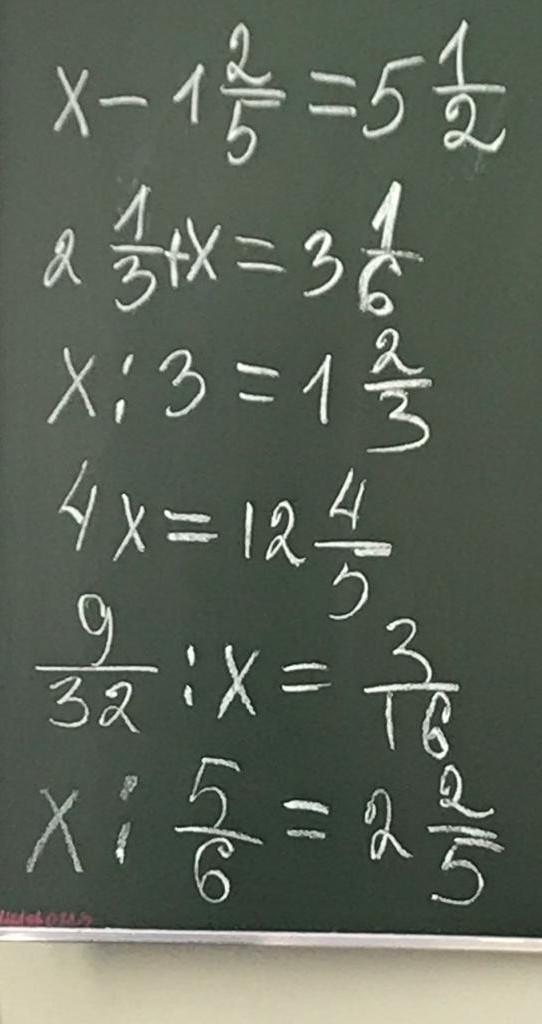 x - 1 2/5 = 5 1/2
2 1/3 + x = 3 1/6
x : 3 = 1 2/3
4x = 12 4/5
9/32 : x = 3/16
x : 5/6 = 2 2/5